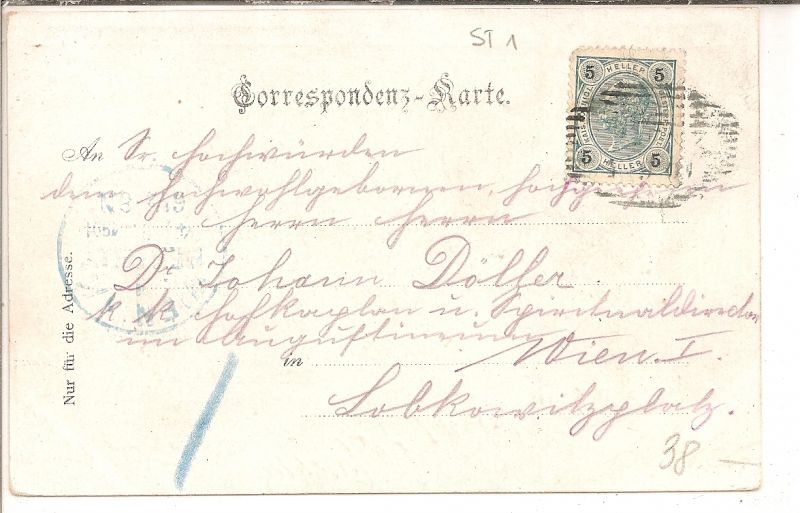 ST 1
5 HELLER 5
5 HELLER 5
Correspondenz-Karte.
An Sr. Hochwürden
dem hochwohlgebornen,
Herrn Herrn
Dr Johann Döller
k. k. Hofkaplan u. Spiritualdirector
im Augustineum
in Wien. I.
Lobkowitzplatz.
Nur für die Adresse.
38 —